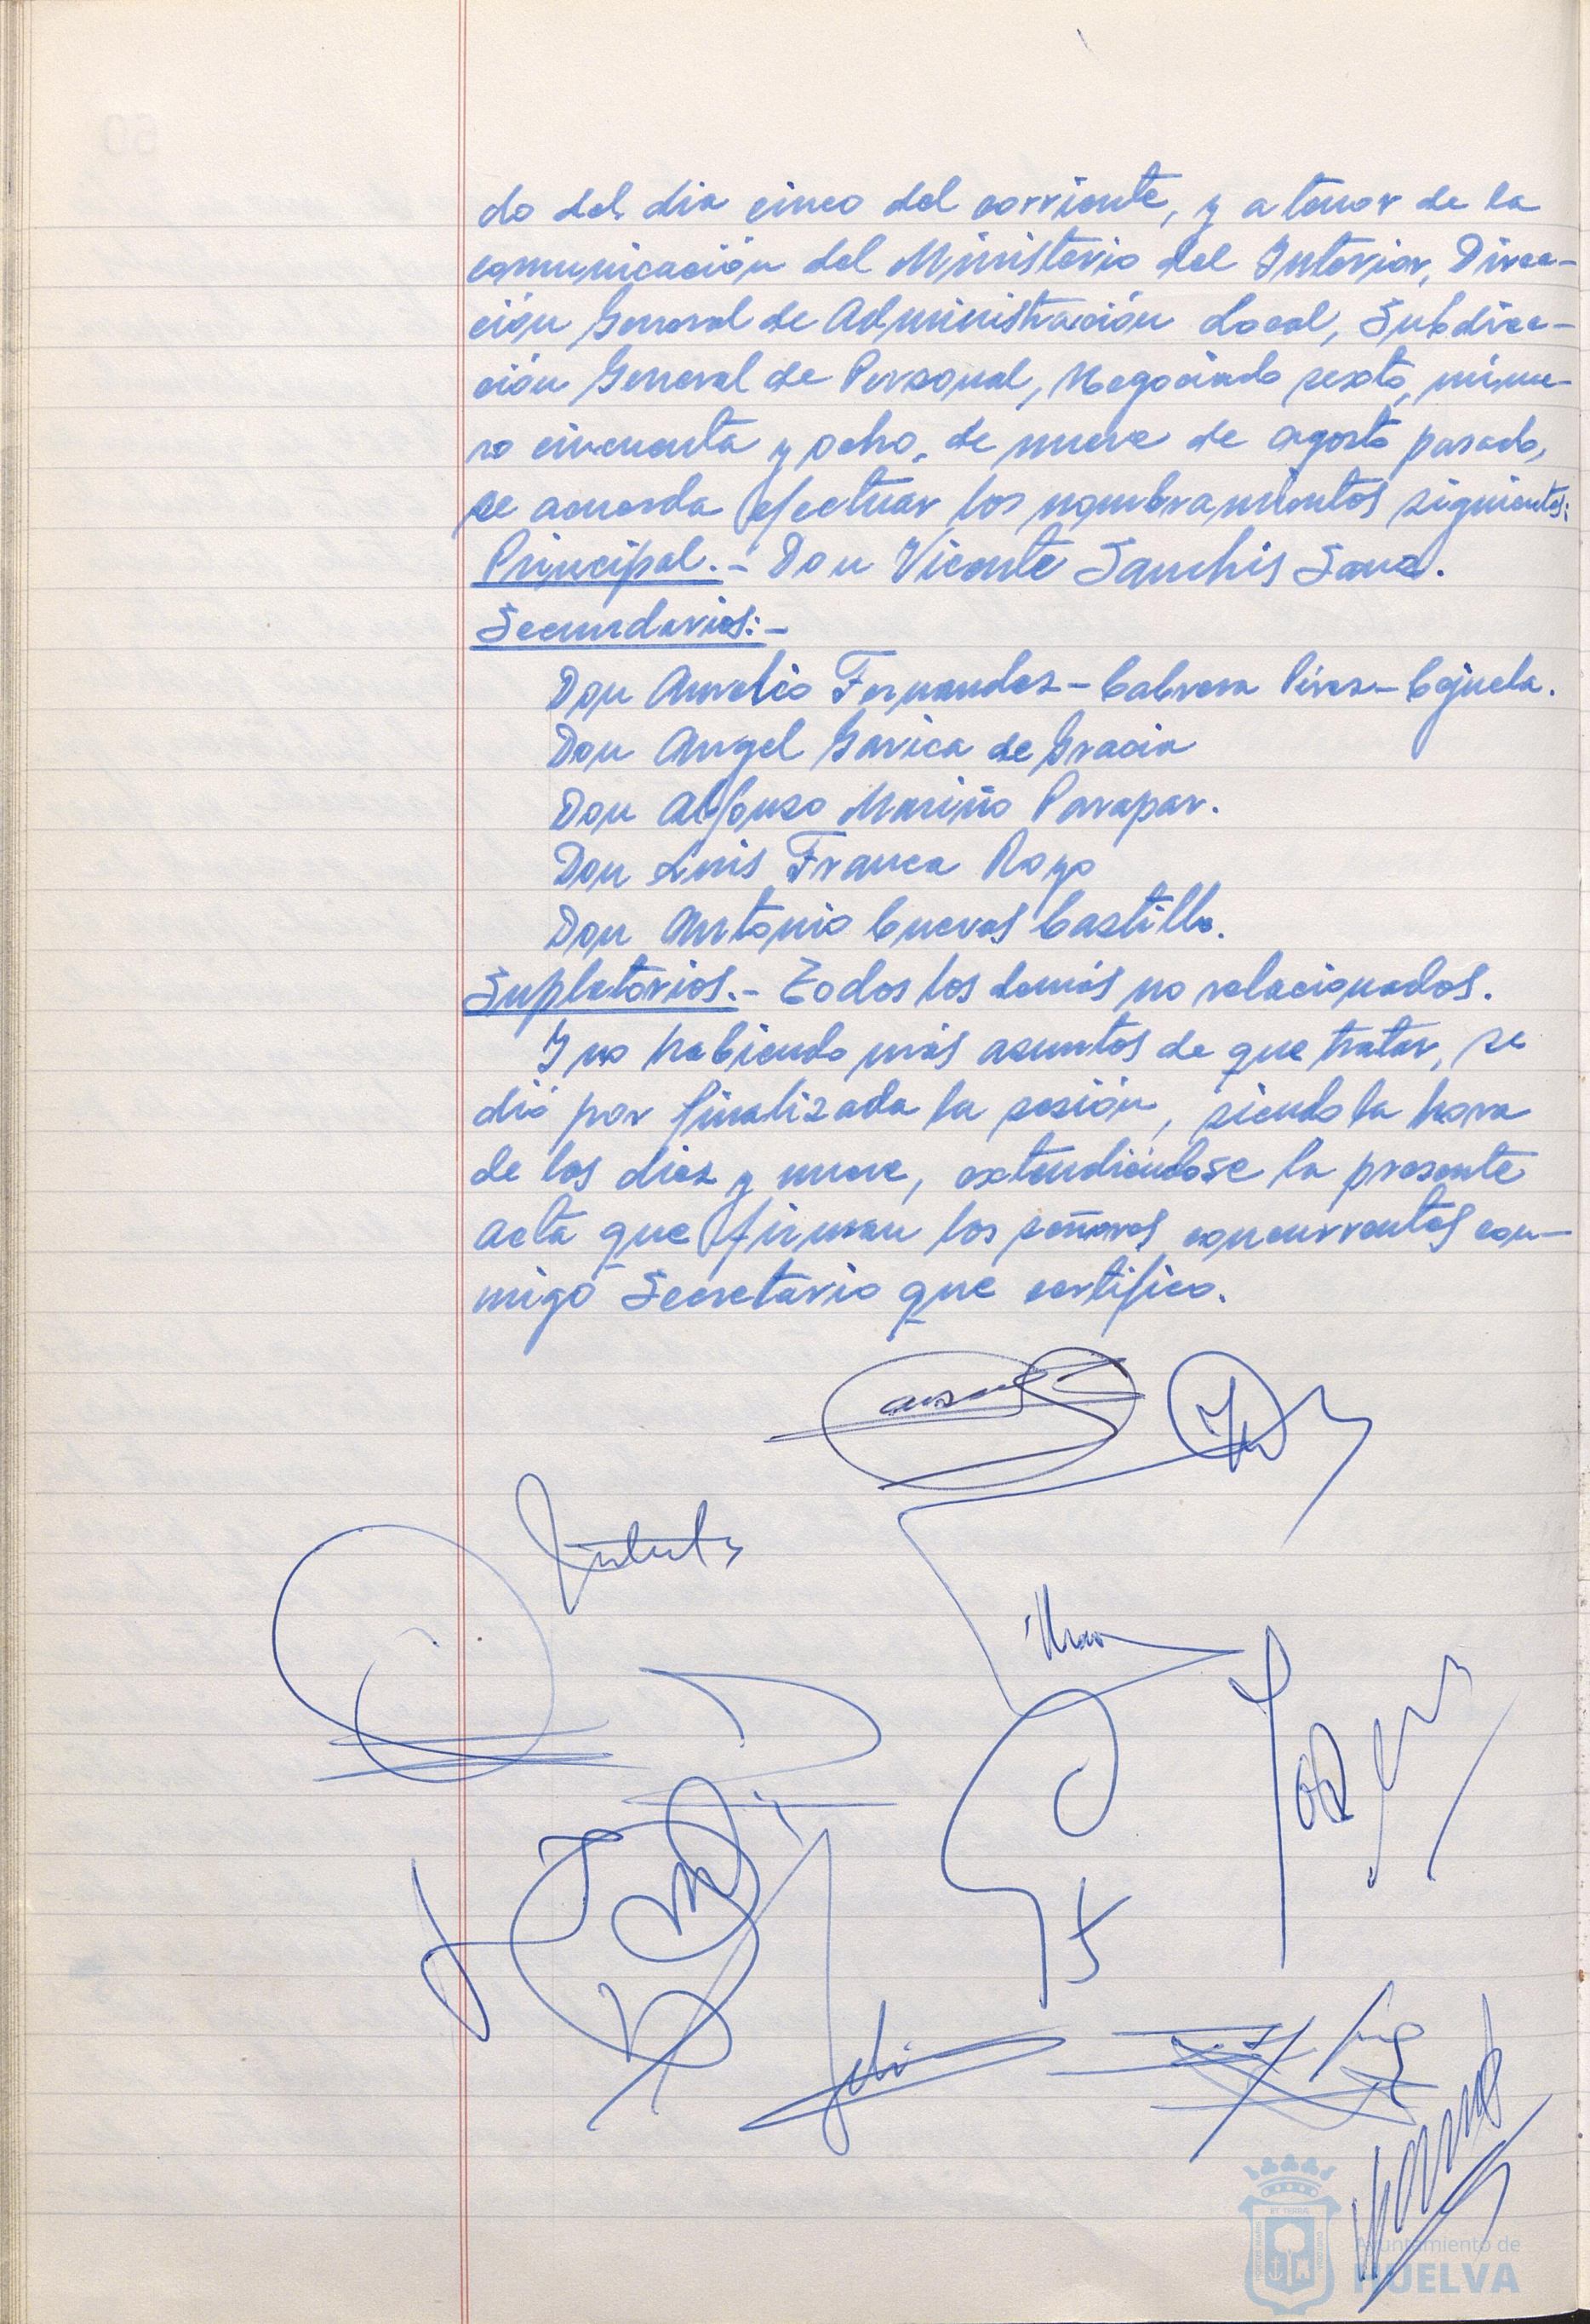 do del dia cinco del corriente, y a tenor de la
comunicación del Ministerio del Interior, Direc-
ción General de Administración Local, Subdirec-
ción General de Personal, Negociado sexto, núme-
ro cincuenta y ocho, de nueve de agosto pasado,
se acuerda efectuar los nombramientos siguientes:
Principal.- Don Vicente Sanchis Sanz.
Secundarios:-
Don Aurelio Fernandez-Cabrera Pérez-Cejuela.
Don Angel Garica de Gracia
Don Alfonso Mariño Parapar.
Don Luis Franca Royo
Don Antonio Cuevas Castillo.
Supletorios.- Todos los demás no relacionados.
Y no habiendo más asuntos de que tratar, se
dió por finalizada la sesión, siendo la hora
de las diez y nueve, extendiéndose la presente
acta que firman los señores concurrentes con-
migo Secretario que certifico.
Ayuntamiento de
HUELVA